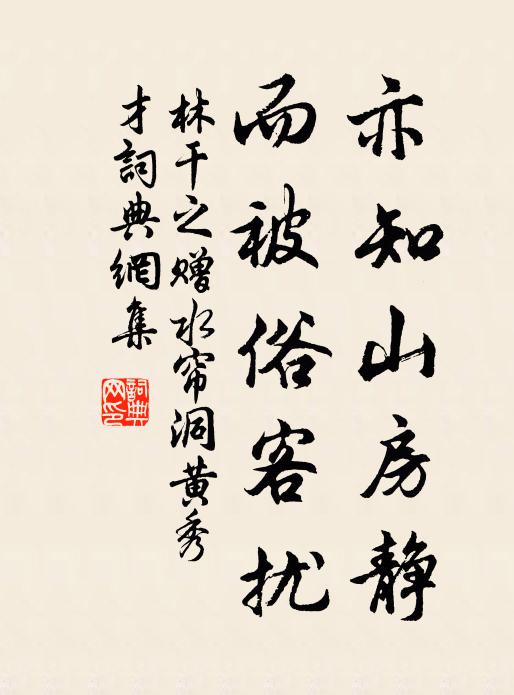 亦知山房静
而被俗客扰
林干之赠水帘洞黄秀
才詞典網集
詞典
网印